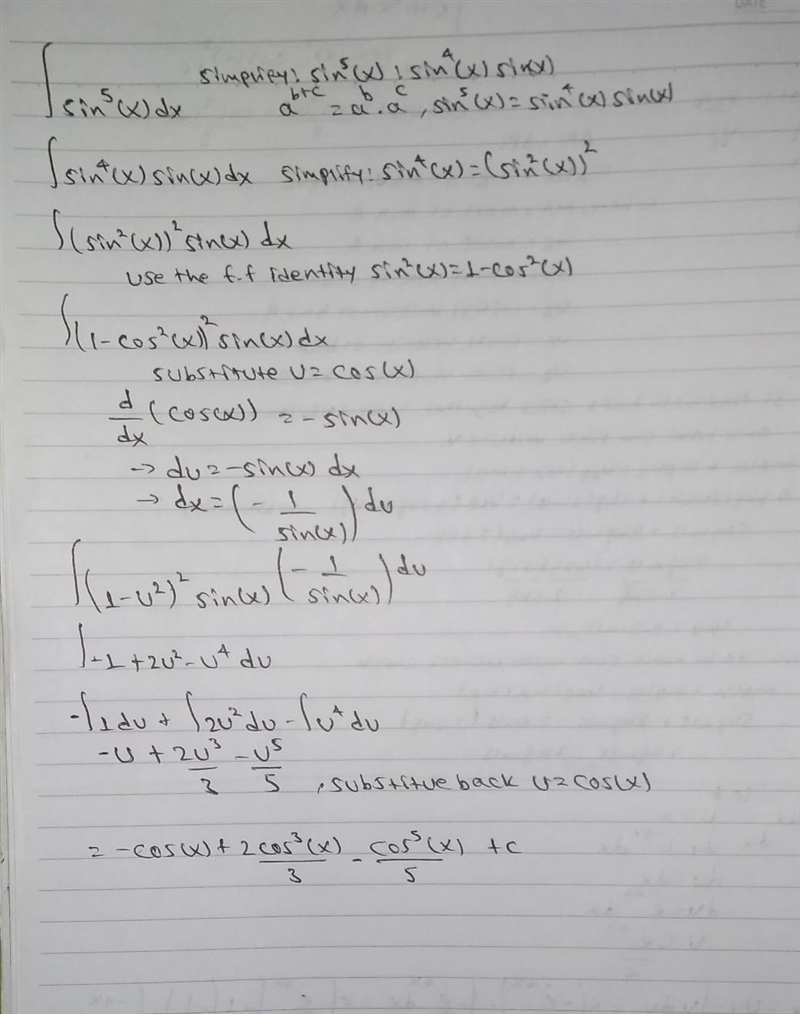 simplify: sin⁵(x) : sin⁴(x) sin(x)
∫ sin⁵(x) dx a^(b+c) = a^b . a^c , sin⁵(x) = sin⁴(x) sin(x)
∫ sin⁴(x) sin(x) dx simplify: sin⁴(x) = (sin²(x))²
∫ (sin²(x))² sin(x) dx
use the f.f identity sin²(x) = 1-cos²(x)
∫ (1-cos²(x))² sin(x) dx
substitute u = cos(x)
d/dx (cos(x)) = -sin(x)
→ du = -sin(x) dx
→ dx = (- 1/sin(x)) du
∫ (1-u²)² sin(x) (- 1/sin(x)) du
∫ -1 + 2u² - u⁴ du
-∫ 1 du + ∫ 2u² du - ∫ u⁴ du
-u + 2u³/3 - u⁵/5 , substitue back u = cos(x)
= -cos(x) + 2cos³(x)/3 - cos⁵(x)/5 + c